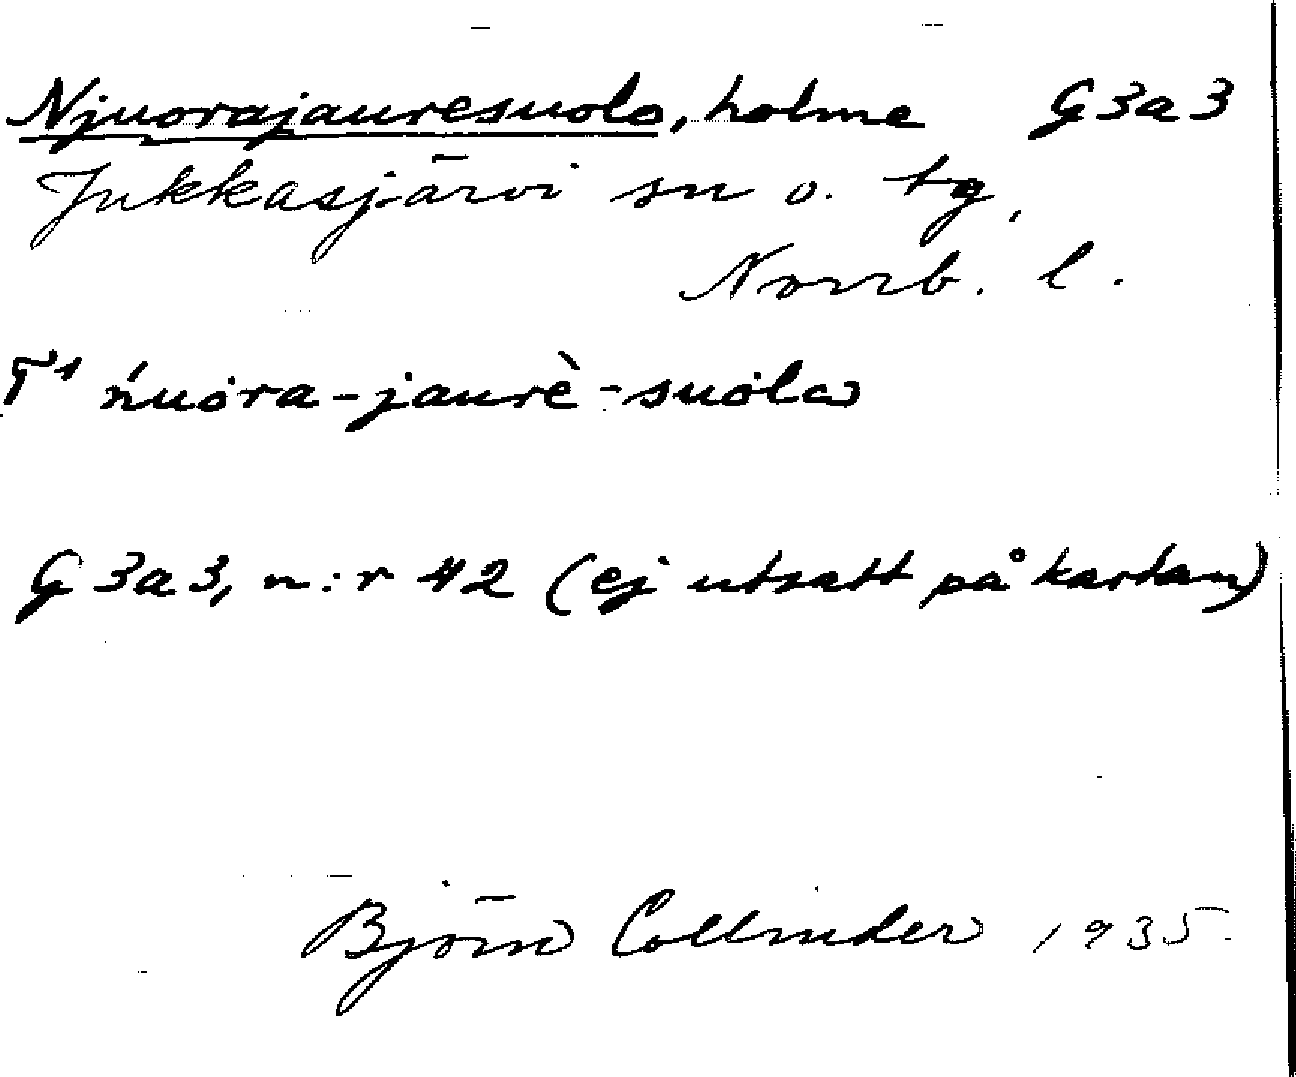 Njuorajauresuolo, holme G3a3
Jukkasjärvi sn o. tg,
Norrb. l.
T¹ ńuȯra-jaurè-suȯla
G3a3, n:r 42 (ej utsatt på kartan)
Björn Collinder 1935